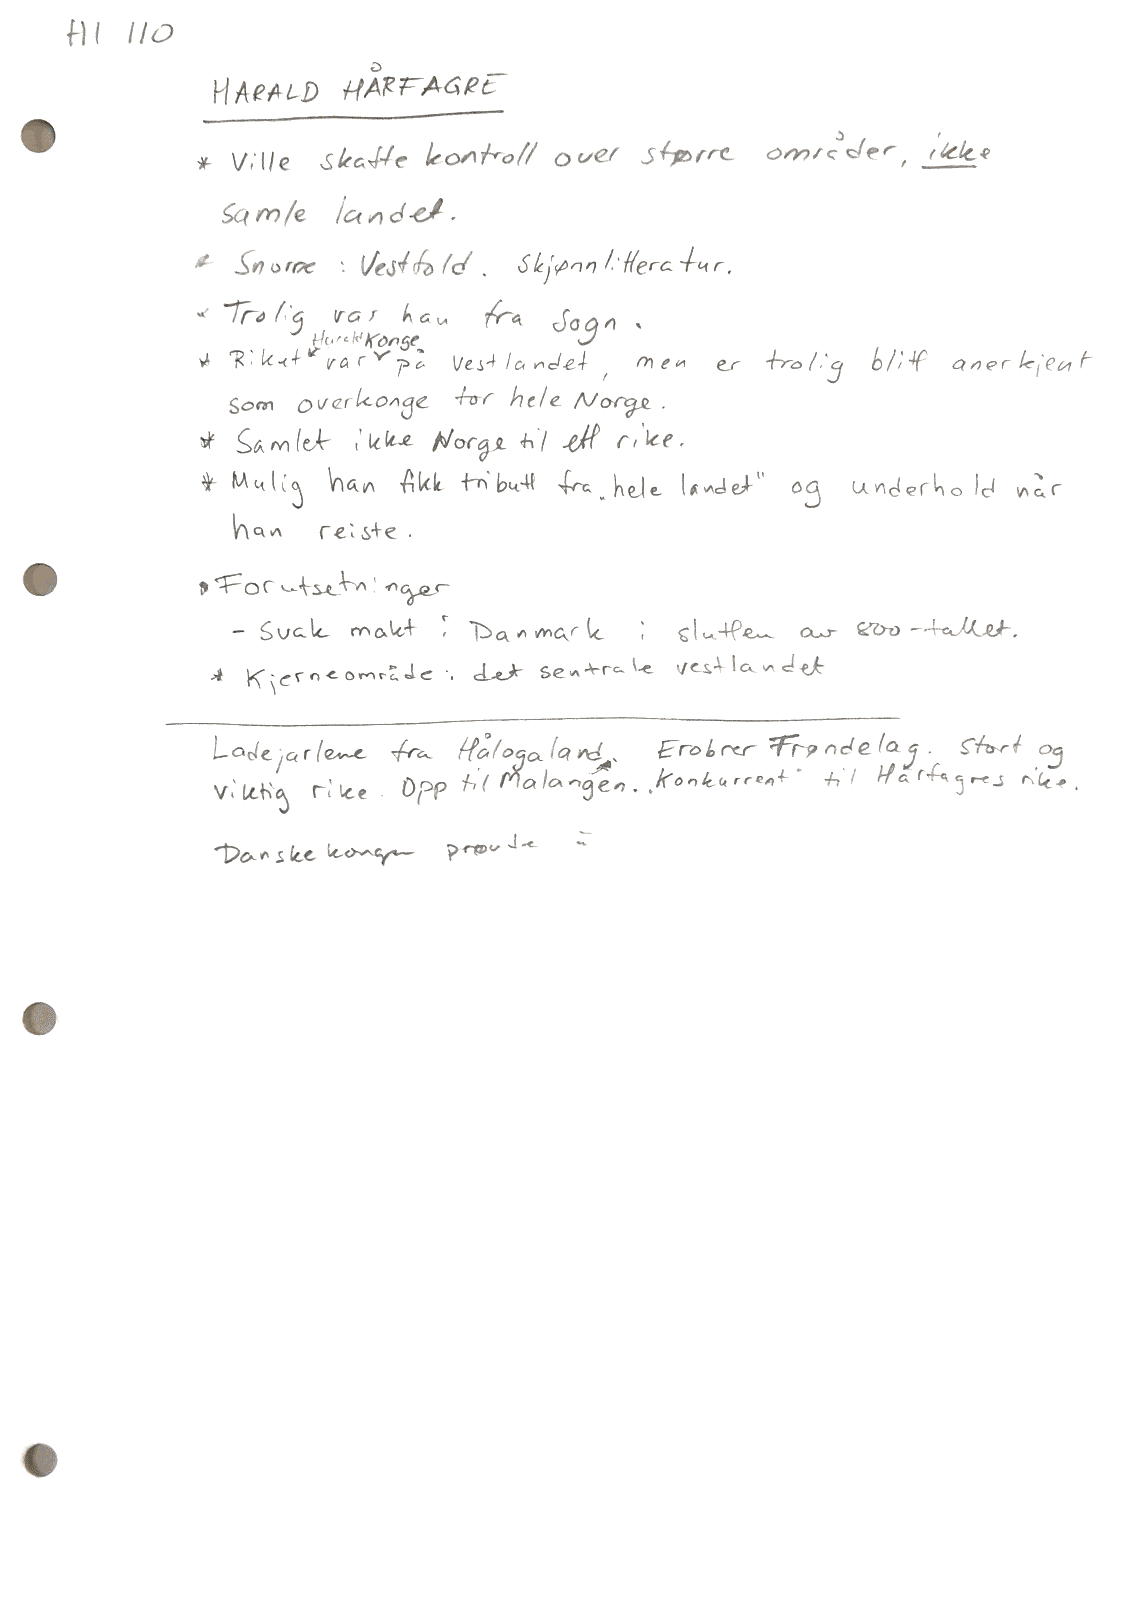 HI 110
HARALD HÅRFAGRE
* Ville skaffe kontroll over større områder, ikke
samle landet.
* Snorre : Vestfold. Skjønnlitteratur.
* Trolig var han fra Sogn.
Harald Konge
* Riket var på vestlandet, men er trolig blitt anerkjent
som overkonge for hele Norge.
* Samlet ikke Norge til ett rike.
* Mulig han fikk tributt fra „hele landet" og underhold når
han reiste.
* Forutsetninger
- Svak makt i Danmark i slutten av 800-tallet.
* Kjerneområde: det sentrale vestlandet
Ladejarlene fra Hålogaland. Erobrer Trøndelag. Stort og
viktig rike. Opp til Malangen. „Konkurrent" til Hårfagres rike.
Danske konger prøvde å